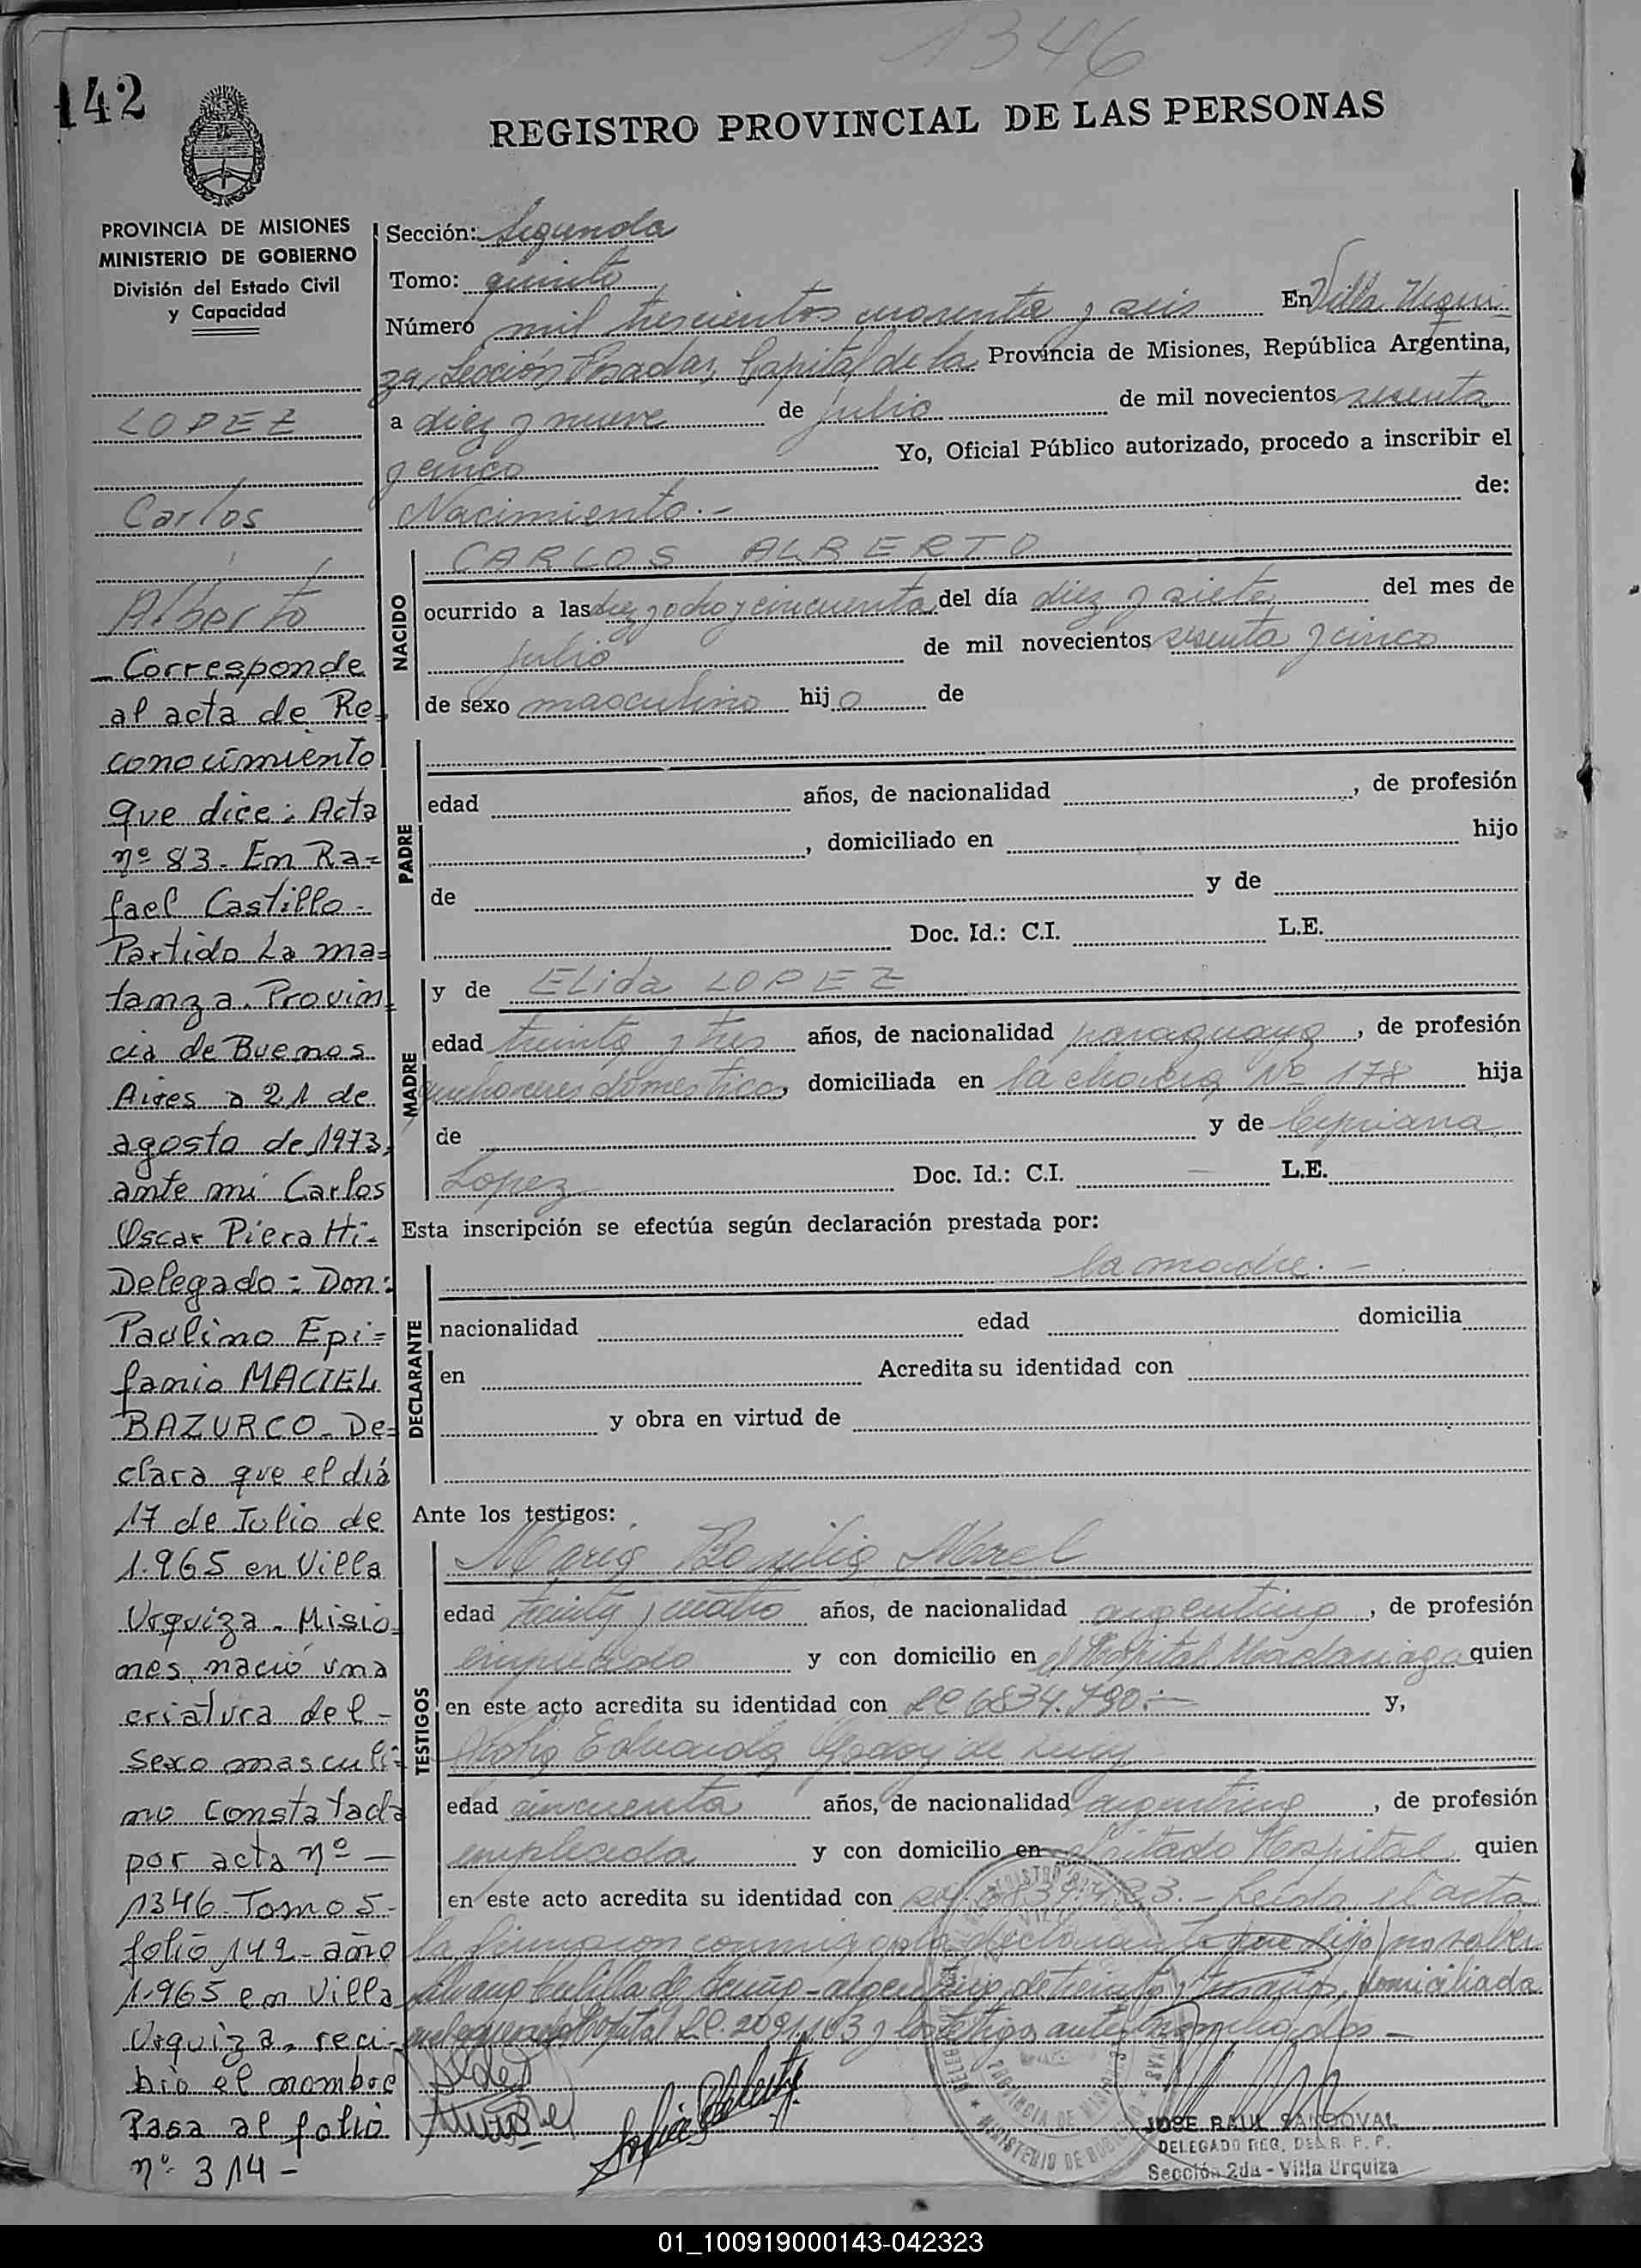 1346
142
REGISTRO PROVINCIAL DE LAS PERSONAS
PROVINCIA DE MISIONES
MINISTERIO DE GOBIERNO
División del Estado Civil
y Capacidad
LOPEZ
Carlos
Alberto
- Corresponde
al acta de Re=
conocimiento
que dice: Acta
nº 83. En Ra=
fael Castillo -
Partido La ma=
tanza. Provin=
cia de Buenos
Aires a 21 de
agosto de 1973,
ante mi Carlos
Oscar Pieratti-
Delegado: Don:
Paulino Epi=
fanio MACIEL
BAZURCO. De=
clara que el diá
17 de Julio de
1.965 en Villa
Urquiza. Misio
nes, nació una
criatura del -
sexo masculi=
no constatada
por acta nº -
1346. Tomo 5-
folio 142 - año
1.965 en Villa
Urquiza, reci-
bio el nombre
Pasa al folio
nº 314 -
Sección: Segunda
Tomo: quinto
Número mil trescientos cuarenta y seis En Villa Urqui
za, Sección Posadas, Capital de la Provincia de Misiones, República Argentina,
a diez y nueve de julio de mil novecientos sesenta
y cinco Yo, Oficial Público autorizado, procedo a inscribir el
Nacimiento.- de:
NACIDO
CARLOS ALBERTO
ocurrido a las diez y ocho y cincuenta del día diez y siete del mes de
julio de mil novecientos sesenta y cinco
de sexo masculino hijo de
PADRE
edad años, de nacionalidad , de profesión
, domiciliado en hijo
de y de
Doc. Id.: C.I. L.E.
MADRE
y de Elida LOPEZ
edad treinta y tres años, de nacionalidad paraguaya, de profesión
quehaceres domesticos, domiciliada en la chacra Nº 178 hija
de y de Cipriana
Lopez Doc. Id.: C.I. - L.E.
Esta inscripción se efectúa según declaración prestada por:
DECLARANTE
la madre.-
nacionalidad edad domicilia
en Acredita su identidad con
y obra en virtud de
Ante los testigos:
TESTIGOS
Maria Basilia Morel
edad treinta y cuatro años, de nacionalidad argentina, de profesión
empleada y con domicilio en el Hospital Madariaga quien
en este acto acredita su identidad con LC 6834.790.- y,
Eduarda Godoy de
edad cincuenta años, de nacionalidad argentina, de profesión
empleada y con domicilio en citado Hospital quien
en este acto acredita su identidad con - Leida el acta
la firman conmigo declarante que dijo no saber
argentina, de treinta y años, domiciliada
Hospital LC. y los testigos antes nombrados -
JOSE RAUL SANDOVAL
DELEGADO REG. DEL R. P. P.
Sección 2da - Villa Urquiza
01_100919000143-042323